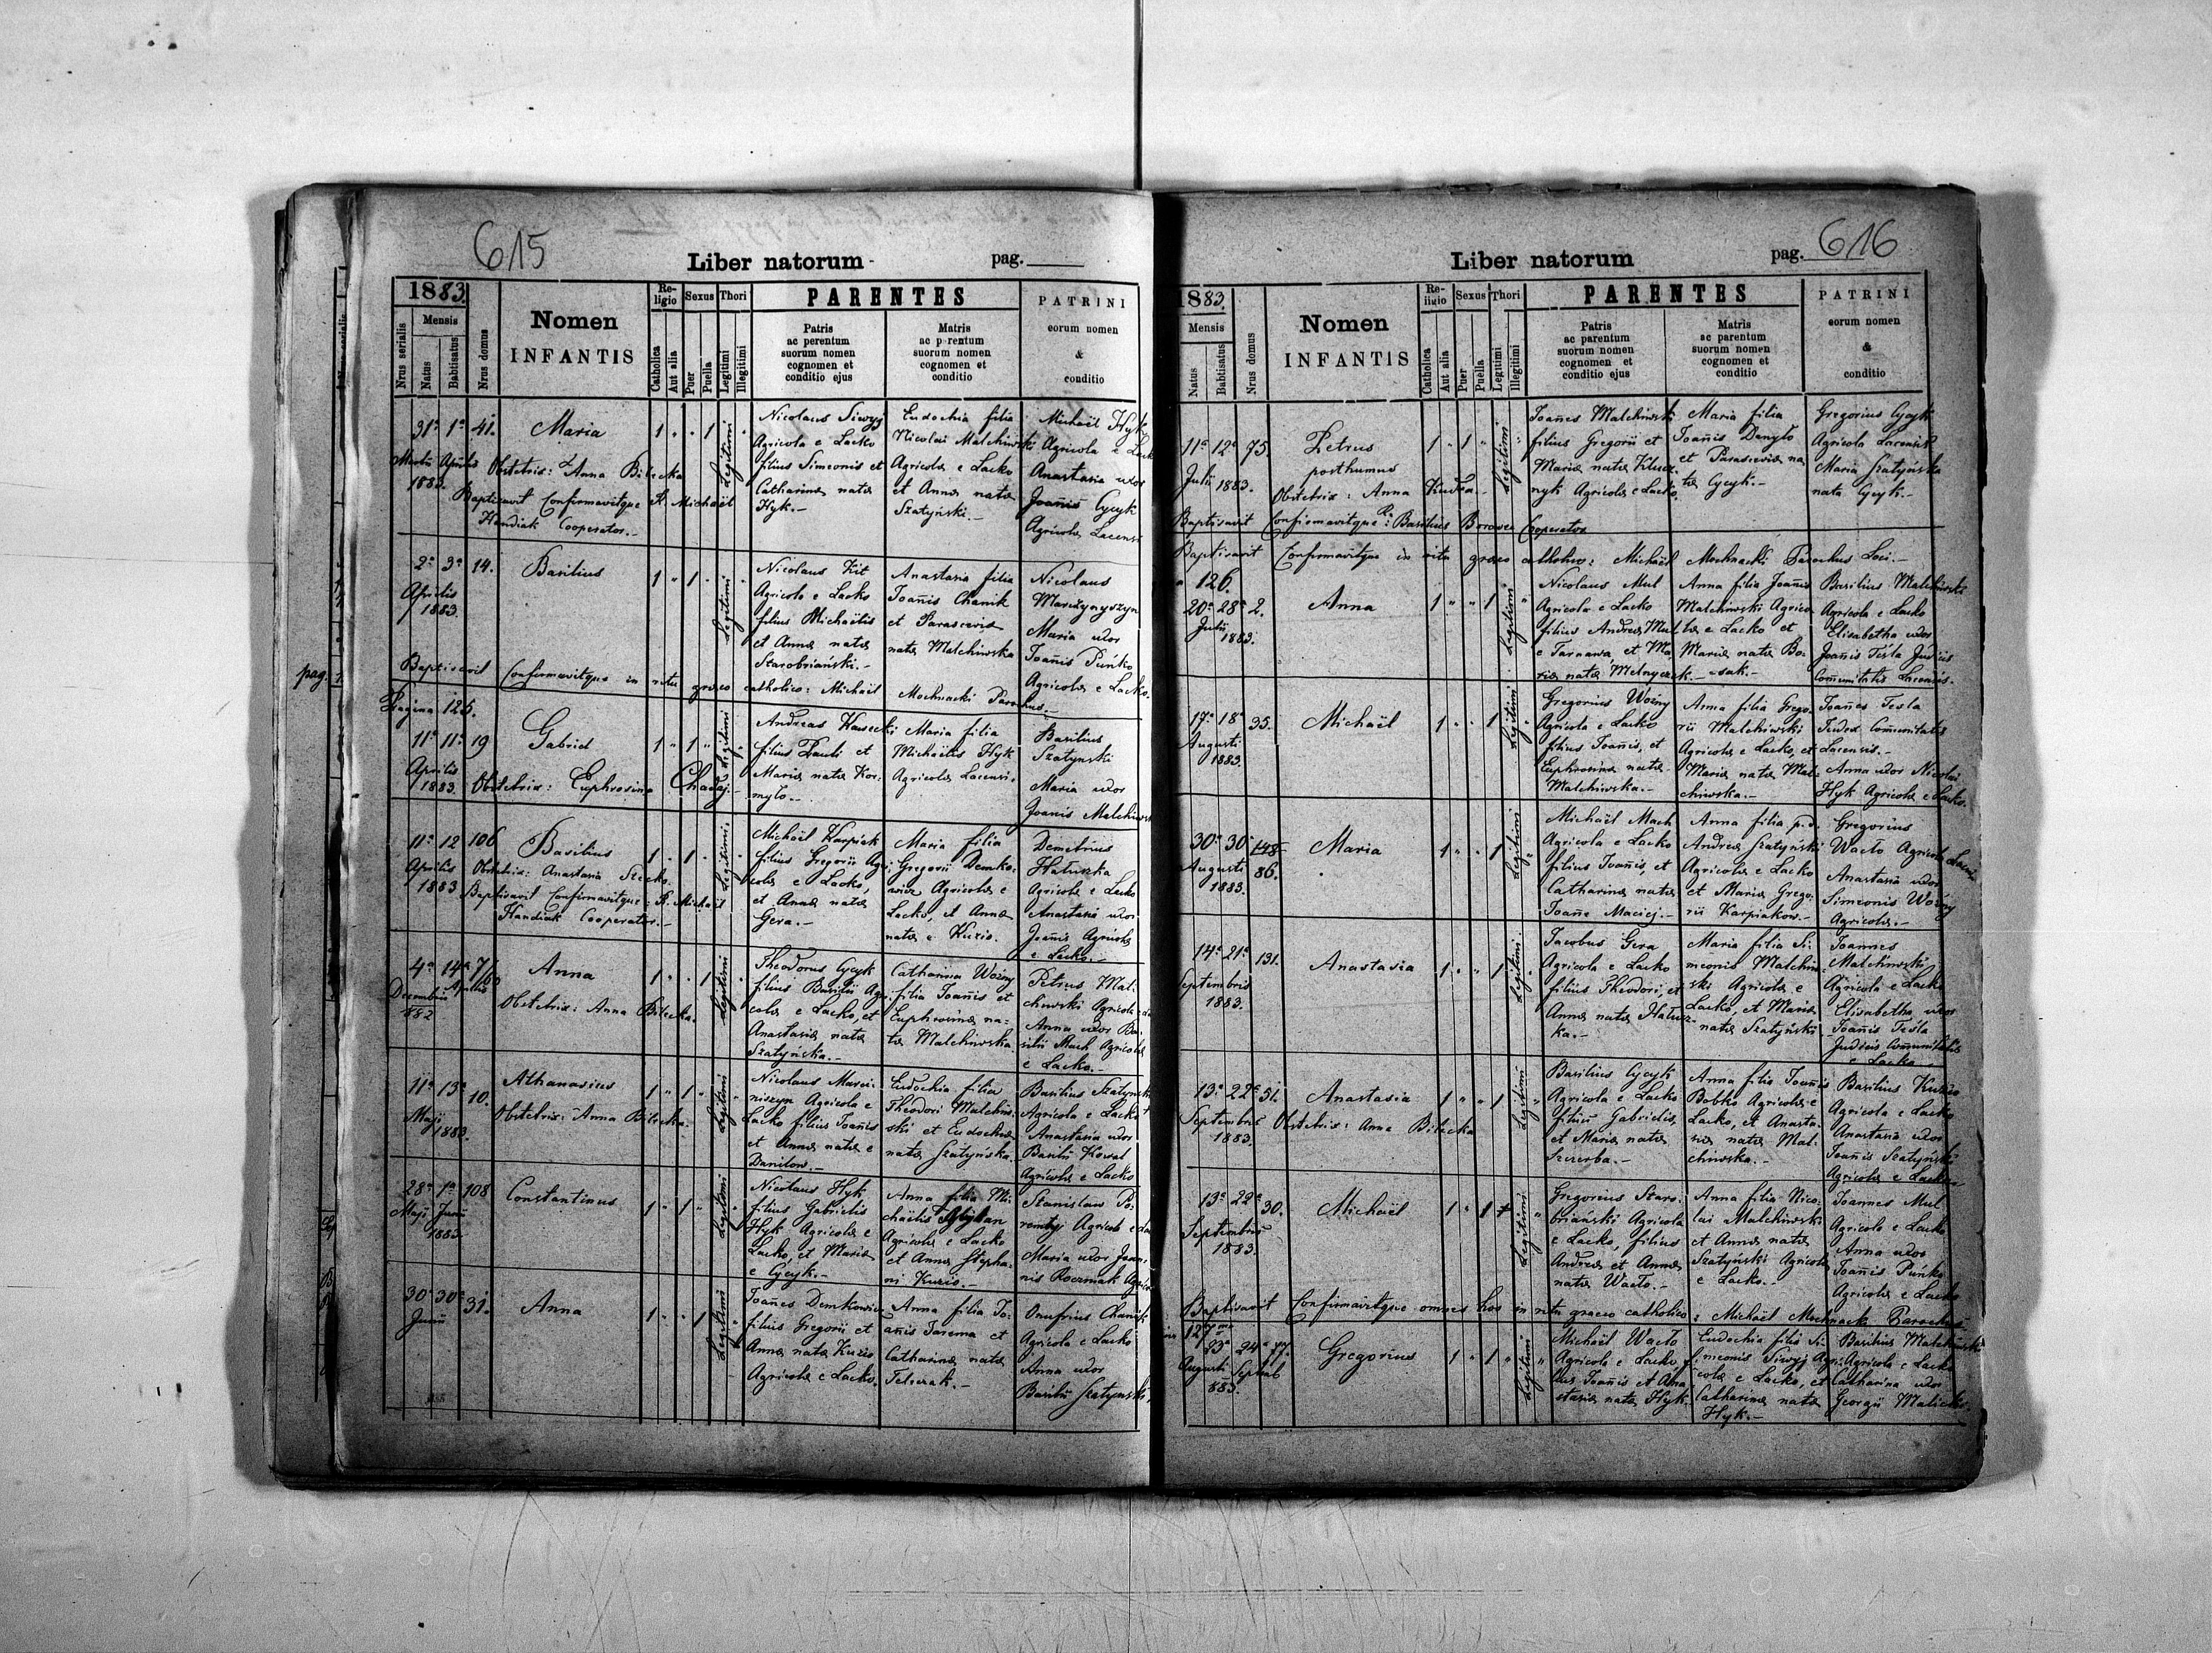 615
Liber natorum
pag.
1883.
Nrus serialis
Mensis
Natus
Babtisatus
Nrus domus
Nomen
INFANTIS
Re-
ligio
Catholica
Aut alia
Sexus
Puer
Puella
Thori
Legitimi
Illegitimi
PARENTES
Patris
ac perentum
suorum nomen
cognomen et
conditio ejus
Matris
ac parentum
suorum nomen
cognomen et
conditio
PATRINI
eorum nomen
&
conditio
31a 1a 41.
Martii Aprilis
1883.
Maria
Obstetrix: Anna Bilecka
Baptisavit Confirmavitque R. Michael
Handiak Cooperator.-
1 " " 1
Legitimi
Nicolaus Siwyj
Agricola e Lacko
filius Simeonis et
Catharinae natae
Hyk.-
Eudochia filia
Nicolai Malchiwski
Agricolae e Lacko
et Annae natae
Szatyński.-
Michaël Hyk
Agricola e Lack
Anastasia uxor
Joannis Cycyk
Agricolae Lacensi
2a 3a 14.
Aprilis
1883.
Basilius
1 " 1 "
Legitimi
Nicolaus Kit
Agricola e Lacko
filius Michaëlis
et Annae natae
Starobriański.-
Anastasia filia
Joannis Chanik
et Parasceviae
natae Malchiwska
Nicolaus
Marczynyszyn
Maria uxor
Joannis Puńko
Agricolae e Lacko.
Baptisavit Confirmavitque in ritu graeco catholico: Michaël Mochnacki Parochus.-
Pagina 125.
11a 11a 19
Aprilis
1883.
Gabriel
Obstetrix: Euphrosina Chadaj.-
1 " 1 "
Legitimi
Andreas Hawecki
filius Pauli et
Mariae natae Kor-
myło.-
Maria filia
Michaëlis Hyk
Agricolae Lacensi.
Basilius
Szatynski
Maria uxor
Joanis Malchiws
11a 12 106
Aprilis
1883
Basilius
Obstetrix: Anastasia Szecko.
Baptisavit Confirmavitque: R. Michaël
Handiak Cooperator.-
1 " 1 "
Legitimi
Michaël Karpiak
filius Gregorii Agri-
colae e Lacko,
et Annae natae
Gera.-
Maria filia
Gregorii Demko-
wicz Agricolae e
Lacko, et Annae
natae e Kuzio.
Demetrius
Hałuszka
Agricola e Lacko
Anastasia uxor
Joannis Agricolae
e Lacko.-
4a 14a
Decembris Aprilis
882
Anna
Obstetrix: Anna Bilecka.
1 " " 1
Legitimi
Theodorus Cycyk
filius Basilii Agri-
colae e Lacko, et
Anastasiae natae
Szatyńska.-
Catharina Woźny
filia Joannis et
Euphrosinae na-
tae Malchiwska
Petrus Mal-
chiwski Agricola
Anna uxor Ba-
silii Mach Agricolae
e Lacko.-
11a 13a 10.
Maji
1883.
Athanasius
Obstetrix: Anna Bilecka.
1 " 1 "
Legitimi
Nicolaus Marci-
niszyn Agricola e
Lacko filius Joannis
et Annae natae e
Daniłow.-
Eudochia filia
Theodori Malchiw-
ski et Eudochiae
natae Szatyńska.-
Basilius Szatyński
Agricola e Lacko
Anastasia uxor
Basilii Kowal
Agricolae e Lacko
28a 1a 108
Maji Junii
1883.
Constantinus
1 " 1 "
Legitimi
Nicolaus Hyk
filius Gabrielis
Hyk Agricolae e
Lacko, et Mariae
e Cycyk.-
Anna filia Mi-
chaëlis
Agricolae e Lacko
et Annae Stepha-
ni Kuzio.-
Stanislaw Po-
Agricola e
Maria uxor Joan-
nis Roczniak Agric
30a 30a 31.
Junii
Anna
1 " " 1
Legitimi
Joannes Demkowicz
filius Gregorii et
Annae natae Kuzio
Agricolae e Lacko.
Anna filia Jo-
annis Jarema et
Catharinae natae
Feliczak.-
Onufrius Chanik
Agricola e Lacko
Anna uxor
Basilii Szatynski
pag.
616
Liber natorum
pag.
1883.
Mensis
Natus
Babtisatus
Nrus domus
Nomen
INFANTIS
Re-
ligio
Catholica
Aut alia
Sexus
Puer
Puella
Thori
Legitimi
Illegitimi
PARENTES
Patris
ac parentum
suorum nomen
cognomen et
conditio ejus
Matris
ac parentum
suorum nomen
cognomen et
conditio
PATRINI
eorum nomen
&
conditio
11a 12a 75.
Julii 1883.
Petrus
posthumus
Obstetrix: Anna Kudła.-
1 " 1 "
Legitimi
Joannes Malchiwski
filius Gregorii et
Mariae natae Klucz-
nyk Agricolae e Lacko.
Maria filia
Joannis Denyło
et Parasceviae na
tae Cycyk.-
Gregorius Cycyk
Agricola Lacensis
Maria Szatyńska
nata Cycyk.-
Baptisavit Confirmavitque Rs: Basilius Borowec Cooperator
Baptisavit Confirmavitque in ritu graeco catholico: Michaël Mochnacki Parochus Loci.-
126.
20a 28a 2.
Julii
1883.
Anna
1 " " 1
Legitimi
Nicolaus Mul
Agricola e Lacko
filius Andreae Mul
e Tarnawa, et Ma
riae natae Melnyczak.-
Anna filia Joannis
Malchiwski Agrico-
lae e Lacko et
Mariae natae Bo-
sak.-
Basilius Malchiwski
Agricola e Lacko
Elisabetha uxor
Joannis Tesla Judicis
Comunitatis Lacensis.
17a 18a 35.
Augusti
1883.
Michaël
1 " " 1
Legitimi
Gregorius Woźny
Agricola e Lacko
filius Joannis, et
Euphrosinae natae
Malchiwska.-
Anna filia Grego-
rii Malchiwski
Agricolae e Lacko, et
Mariae natae Mal-
chiwska.-
Joannes Tesla
Judex Comunitatis
Lacensis.-
Anna uxor Nicolai
Hyk Agricolae e Lacko.
30a 30a 148
86.
Augusti
1883.
Maria
1 " " 1
Legitimi
Michaël Mach
Agricola e Lacko
filius Joannis, et
Catharinae natae
Joanne Maciej.-
Anna filia p. d.
Andreae Szatyński
Agricolae e Lacko
et Mariae Grego-
rii Karpiakow.-
Gregorius
Wacło Agricola Lacensis
Anastasia uxor
Simeonis Woźny
Agricolae.-
14a 21a 131.
Septembris
1883.
Anastasia
1 " " 1
Legitimi
Jacobus Gera
Agricola e Lacko
filius Theodori, et
Annae natae Hałusz-
ka.-
Maria filia Si-
meonis Malchiw-
ski Agricolae e
Lacko, et Mariae
natae Szatyński
Joannes
Malchiwski
Agricola e Lacko
Elisabetha uxor
Joannis Tesla
Judicis Comunitatis
e Lacko
13a 22a 51.
Septembris
1883.
Anastasia
Obstetrix: Anna Bilecka
1 " " 1
Legitimi
Basilius Cycyk
Agricola e Lacko
filius Gabrielis,
et Mariae natae
Szczerba.-
Anna filia Joannis
Bobko Agricolae e
Lacko, et Anasta-
siae natae Mal-
chiwska.-
Basilius Kuzio
Agricola e Lacko
Anastasia uxor
Joannis Szatyński
Agricolae e Lacko
13a 22a 30.
Septembris
1883.
Michaël
1 " 1
Legitimi
Gregorius Staro-
briański Agricola
e Lacko, filius
Andreae et Annae
natae Wacło.-
Anna filia Nico-
lai Malchiwski
et Annae natae
Szatyński Agricolae
e Lacko.-
Joannes Mul
Agricola e Lacko
Anna uxor
Joannis Puńko
Agricolae e Lacko
Baptisavit Confirmavitque omnes hos in ritu graeco catholico: Michaël Mochnacki Parochus
127ma
23a 24a 77.
Augusti Septemb
883.
Gregorius
1 " 1 "
Legitimi
Michaël Wacło
Agricola e Lacko, fi-
lius Joannis et Ana-
stasiae natae Hyk.
Eudochia filia Si-
meonis Siwyj Agri-
colae e Lacko, et
Catharinae natae
Hyk.-
Basilius Malchiwski
Agricola e Lacko
Catharina uxor
Georgii Malicko.